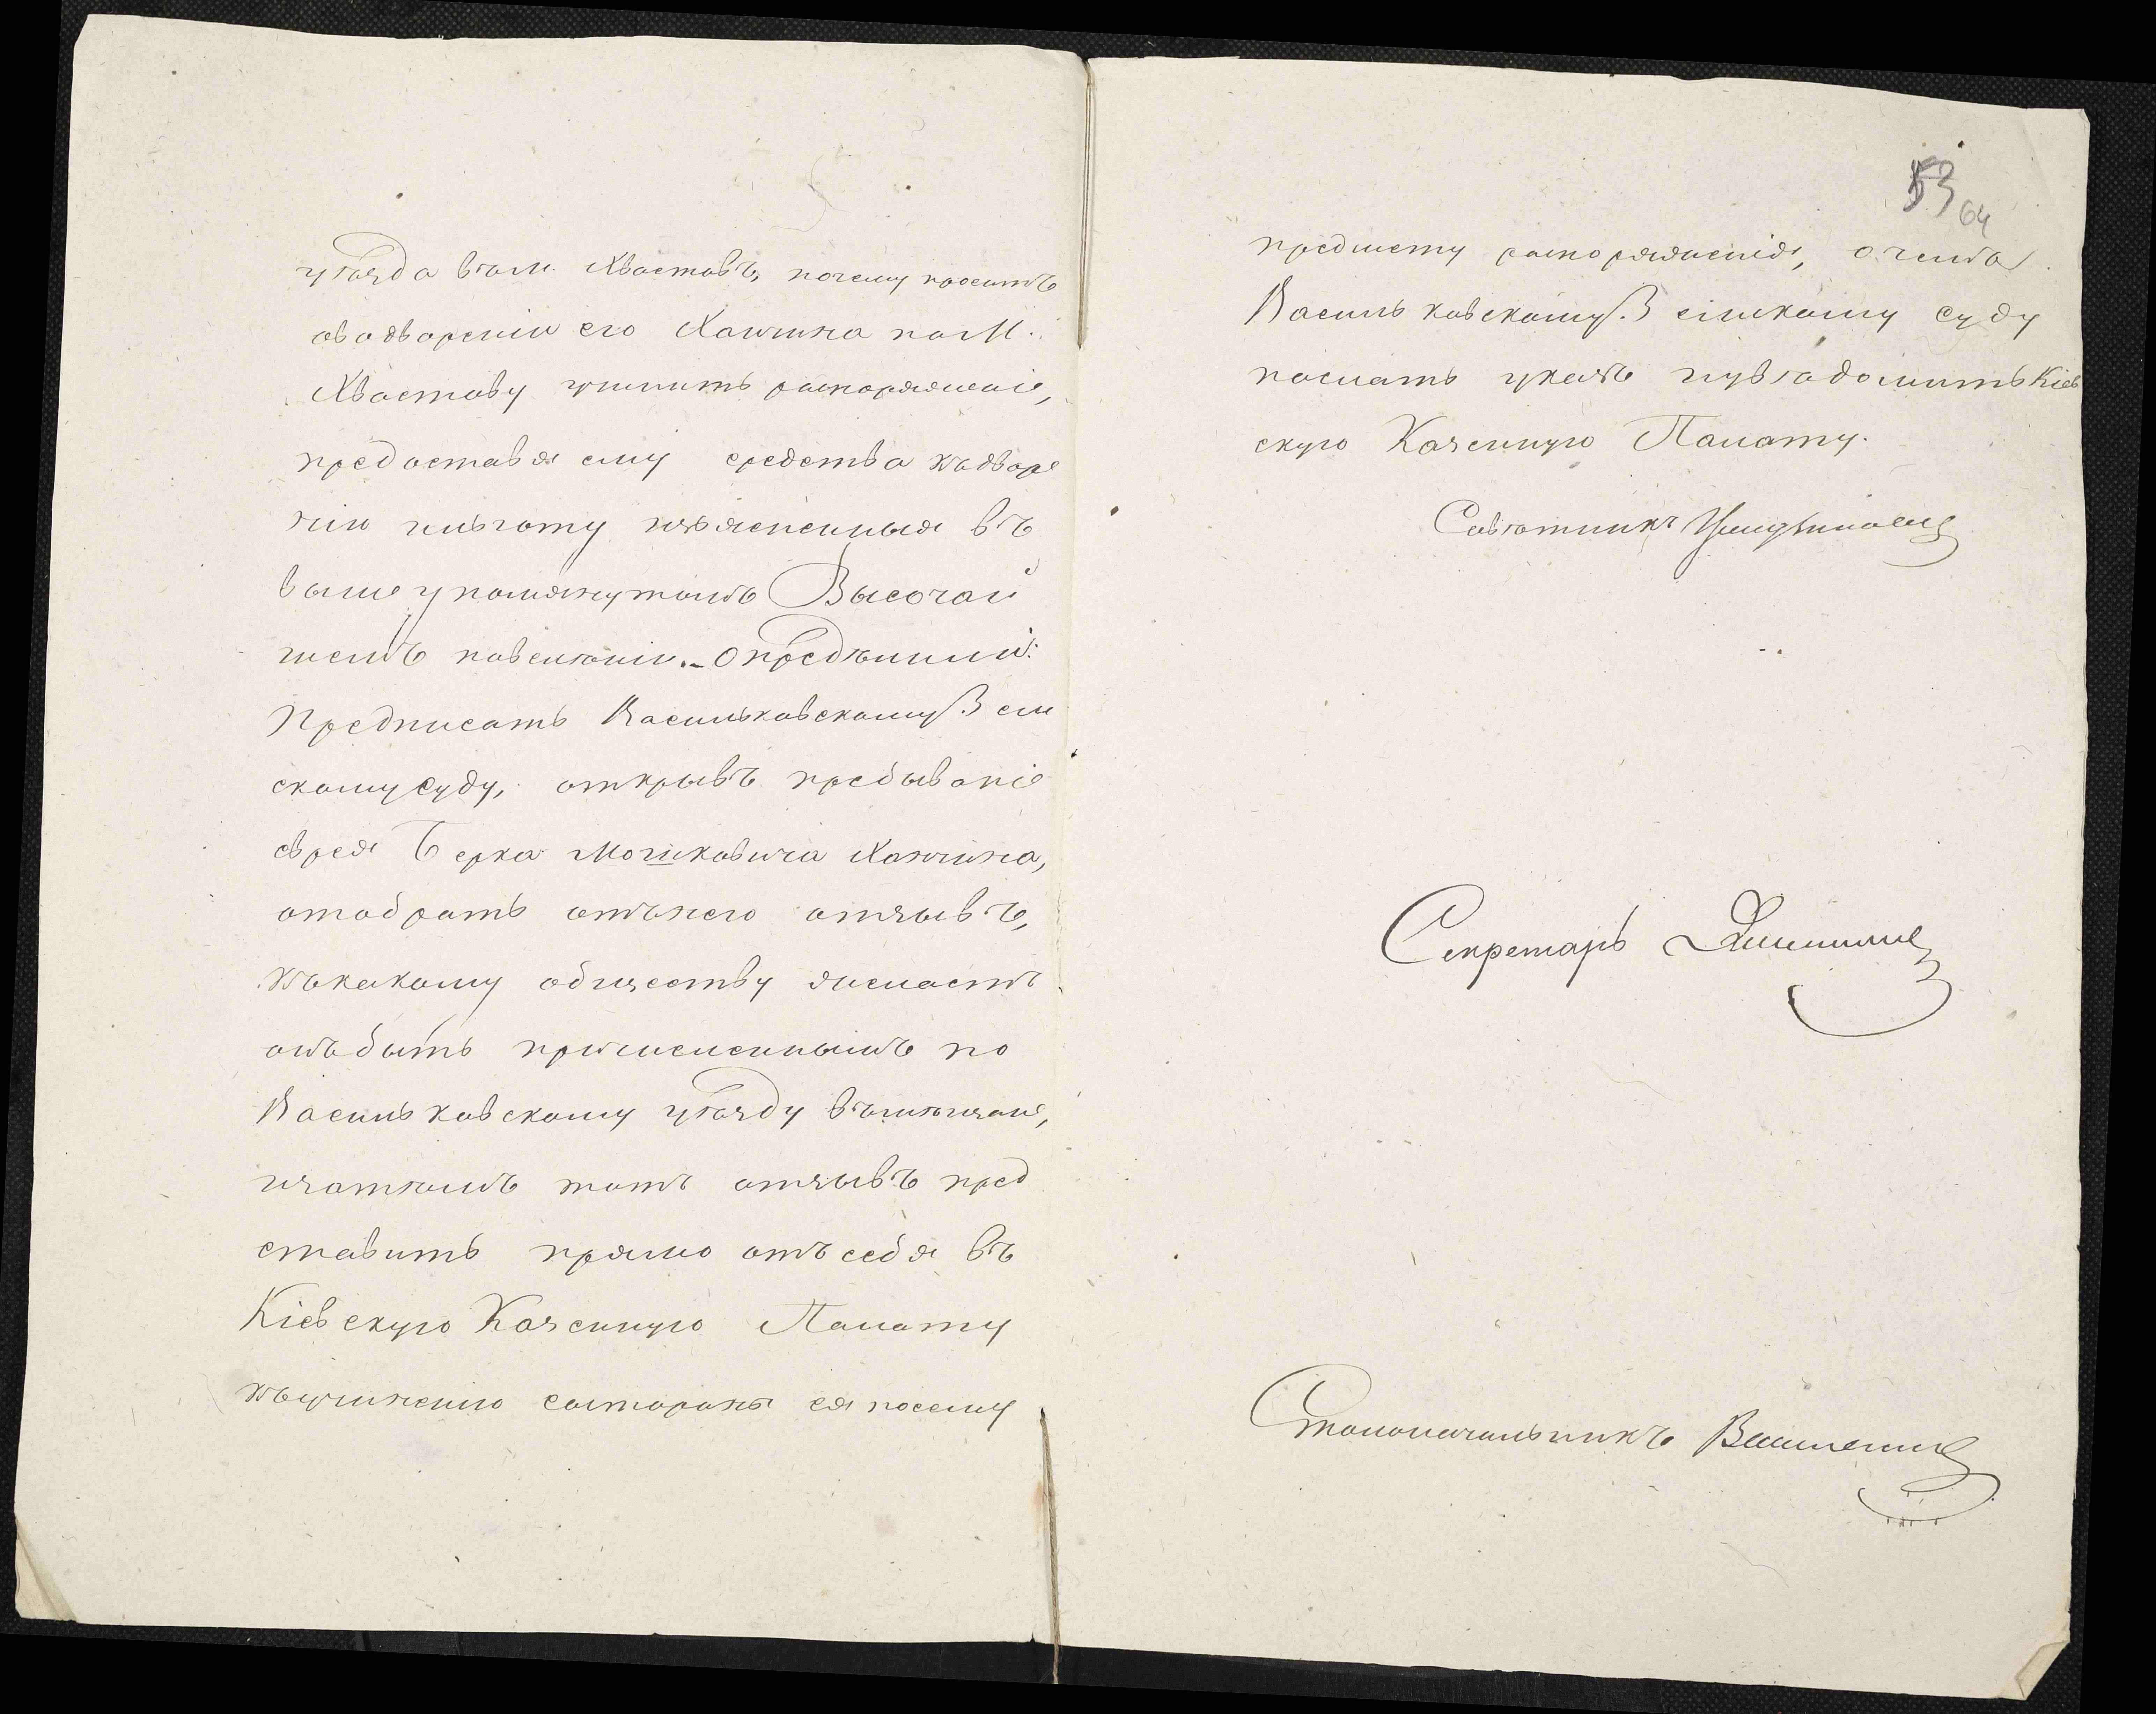 уѣзда въ м. Хвастовъ, почему проситъ
о водвореніи его Ханчина по М.
Хвастову учинить распоряженіе,
предоставя ему средства къ дворе
нію и льготу изъясненныя въ
вышеупомянутомъ Высочай
шемъ повелѣніи. – Опредѣлили:
Предписать Васильковскому Зем
скому Суду, открывъ пребываніе
еврея Берка Мошковича Ханчина,
отобрать отъ него отзывъ,
къ какому обществу желаетъ
онъ быть причисленнымъ по
Васильковскому уѣзду въ мѣщане,
и затѣмъ тотъ отзывъ пред
ставить прямо отъ себя въ
Кіевскую Казенную Палату
къ учиненію со стороны ея по сему
53
64
предмету распоряженія, о чемъ
Васильковскому Земскому Суду
послать указъ и увѣдомить Кіев
скую Казенную Палату.
Совѣтникъ
Секретарь
Столоначальникъ